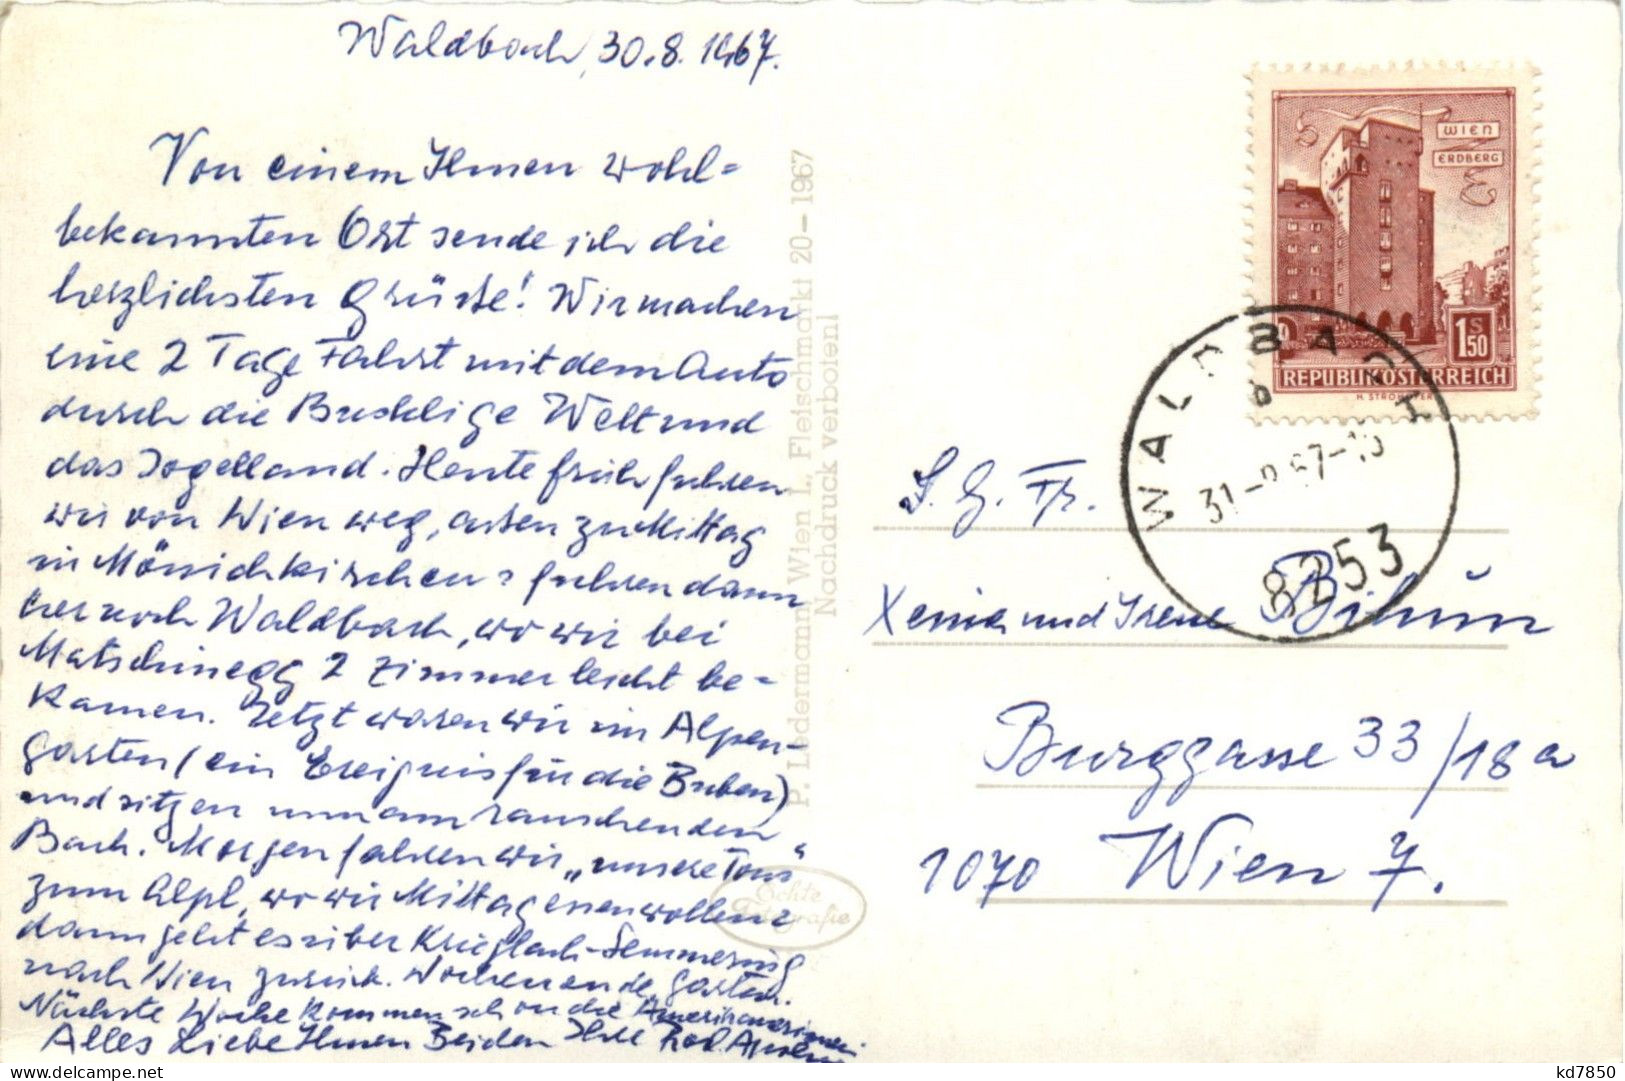 Waldbach, 30.8.1967.
Von einem Ihnen wohl=
bekannten Ort sende ich die
herzlichsten Grüße! Wir machen
eine 2 Tage Fahrt mit dem Auto
durch die Bucklige Welt und
das Jogelland. Heute früh fuhren
wir von Wien weg, assen zu Mittag
in Mönichkirchen u fuhren dann
her nach Waldbach, wo wir bei
Matschinegg 2 Zimmer leicht be=
kamen. Jetzt waren wir im Alpen-
garten (ein Ereignis für die Buben)
und sitzen nun am rauschenden
Bach. Morgen fahren wir „unsere Tour“
zum Alpl, wo wir Mittag essen wollen u
dann geht es über Krieglach-Semmering
nach Wien zurück. Wochenende Garten.
Nächste Woche kommen schon die Amerikanerinnen
Alles Liebe Ihnen Beiden Ihre
P. Ledermann, Wien I., Fleischmarkt 20–1967
Nachdruck verboten!
Echte
Fotografie
WIEN
ERDBERG
1 S 50
REPUBLIK ÖSTERREICH
H. STROHOFER
WALDBACH
b
31-8.67-
8253
S. G. Fr.
Xenia und Irene Bihun
Burggasse 33/18a
1070 Wien 7.